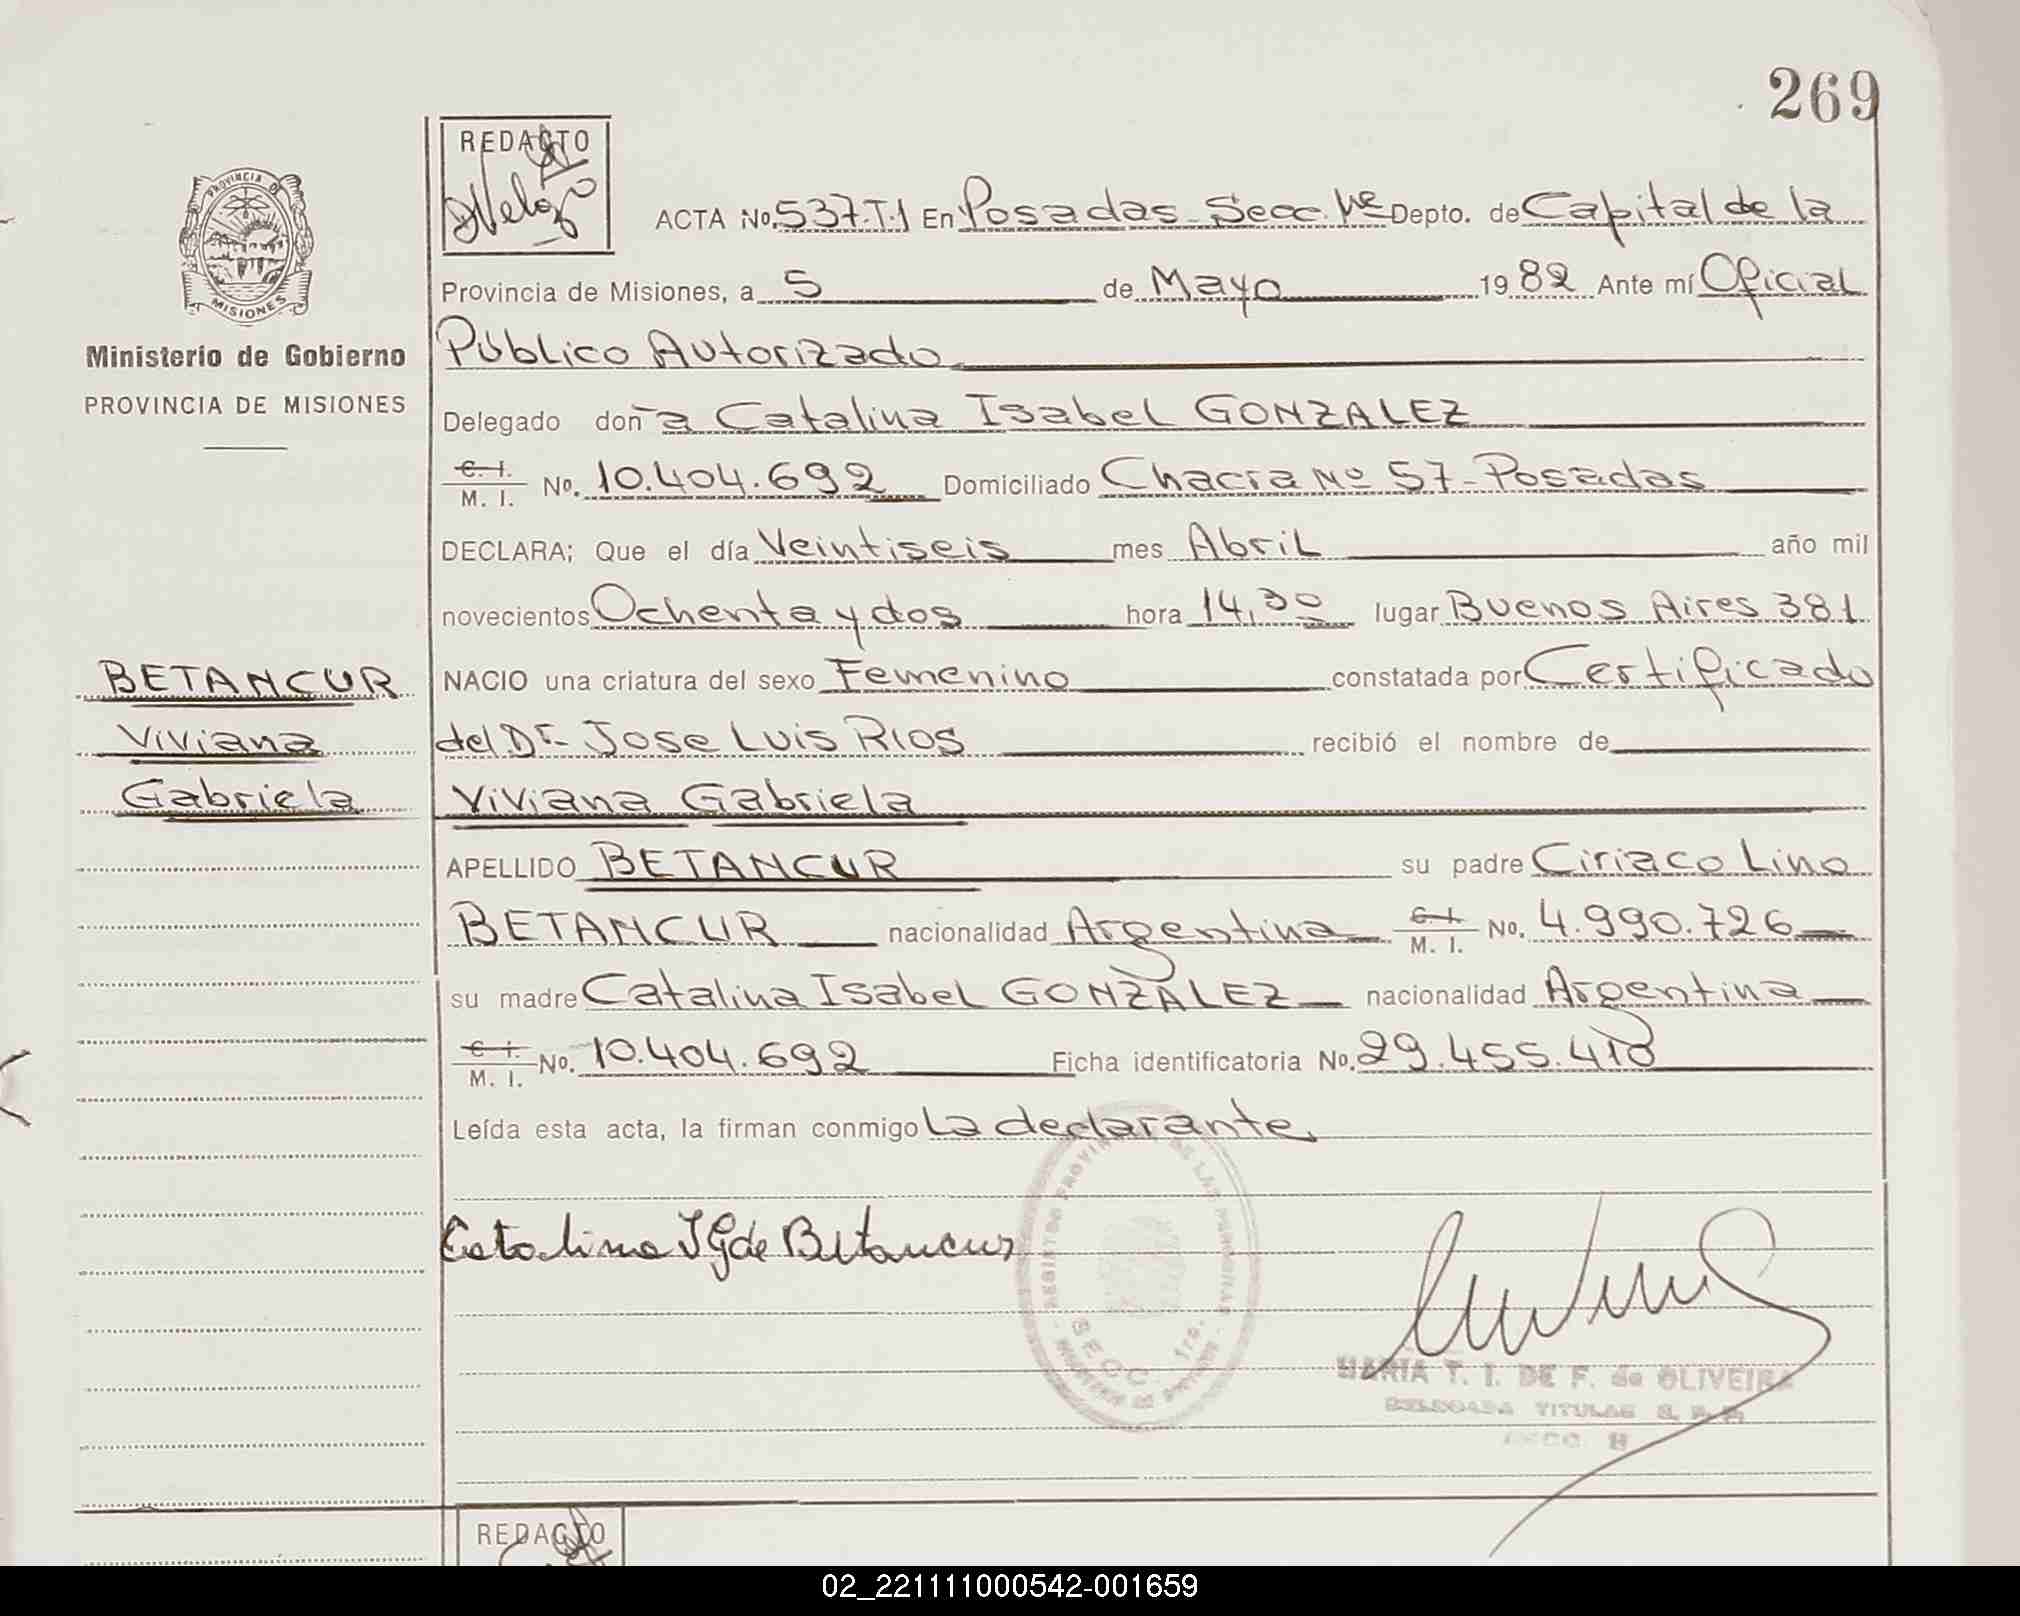 269
REDACTO
PROVINCIA DE
MISIONES
Ministerio de Gobierno
PROVINCIA DE MISIONES
ACTA No. 537.T.1 En Posadas Secc. 1ra Depto. de Capital de la
Provincia de Misiones, a 5 de Mayo 1982 Ante mí Oficial
Público Autorizado
Delegado doña Catalina Isabel GONZALEZ
C. I.
M. I. No. 10.404.692 Domiciliado Chacra No 57 - Posadas
DECLARA; Que el día Veintiseis mes Abril año mil
novecientos Ochenta y dos hora 14,30 lugar Buenos Aires 381
NACIO una criatura del sexo Femenino constatada por Certificado
del Dr. Jose Luis Rios recibió el nombre de
Viviana Gabriela
APELLIDO BETANCUR su padre Ciriaco Lino
BETANCUR nacionalidad Argentina C. I. M. I. No. 4.990.726
su madre Catalina Isabel GONZALEZ nacionalidad Argentina
C. I. M. I. No. 10.404.692 Ficha identificatoria No. 29.455.418
Leída esta acta, la firman conmigo La declarante
BETANCUR
Viviana
Gabriela
Catalina I G de Betancur
SECC. 1ra.
MARIA T. I. DE F. de OLIVEIRA
DELEGADA TITULAR
REDACTO
02_221111000542-001659